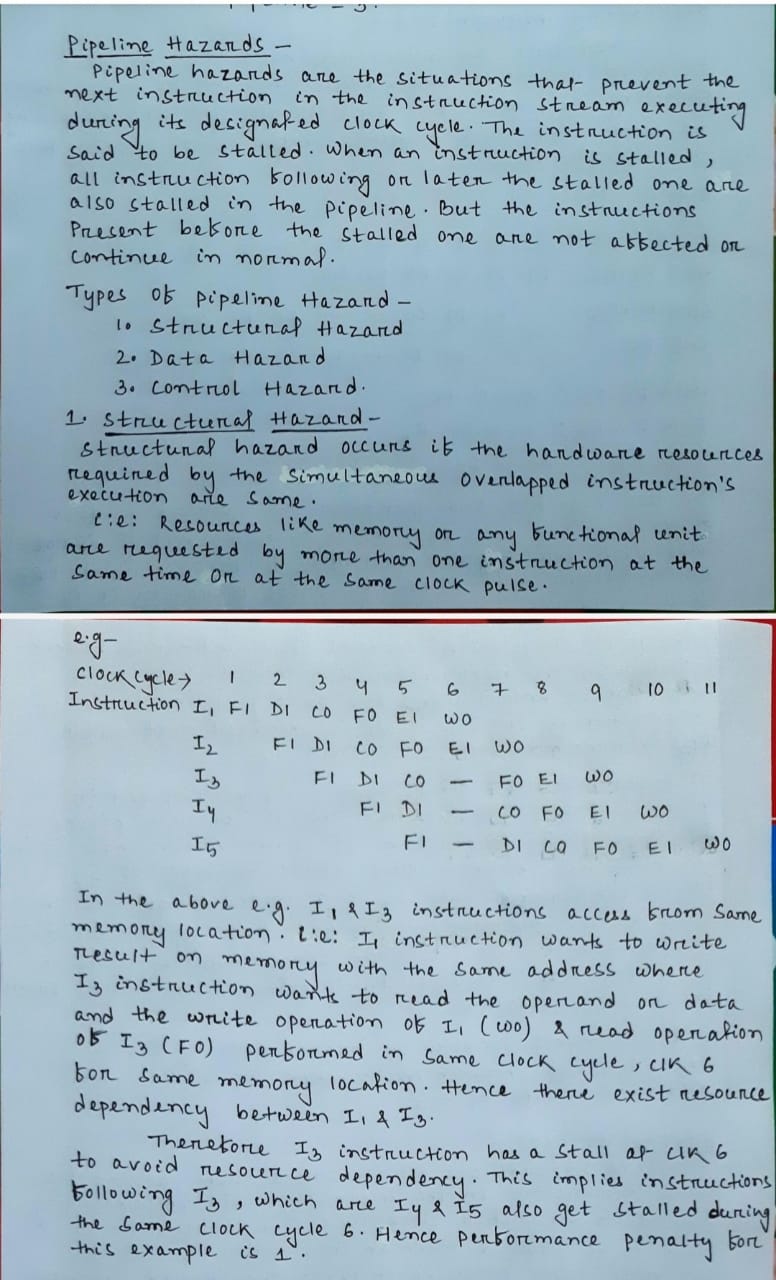 Pipeline Hazards -
Pipeline hazards are the situations that prevent the
next instruction in the instruction stream executing
during its designated clock cycle. The instruction is
said to be stalled. When an instruction is stalled,
all instruction following or later the stalled one are
also stalled in the pipeline. But the instructions
Present before the stalled one are not affected or
continue in normal.
Types of pipeline Hazard -
1. Structural Hazard
2. Data Hazard
3. Control Hazard.
1. Structural Hazard -
Structural hazard occurs if the hardware resources
required by the simultaneous overlapped instruction's
execution are same.
i:e: Resources like memory or any functional unit
are requested by more than one instruction at the
same time or at the same clock pulse.
e.g-
Clock cycle→ 1 2 3 4 5 6 7 8 9 10 11
Instruction I1 FI DI CO FO EI WO
I2 FI DI CO FO EI WO
I3 FI DI CO — FO EI WO
I4 FI DI — CO FO EI WO
I5 FI — DI CO FO EI WO
In the above e.g. I1 & I3 instructions access from same
memory location. i:e: I1 instruction wants to write
result on memory with the same address where
I3 instruction wants to read the operand or data
and the write operation of I1 (WO) & read operation
of I3 (FO) performed in same clock cycle, clk 6
for same memory location. Hence there exist resource
dependency between I1 & I3.
Therefore I3 instruction has a stall at clk 6
to avoid resource dependency. This implies instructions
following I3, which are I4 & I5 also get stalled during
the same clock cycle 6. Hence performance penalty for
this example is 1.